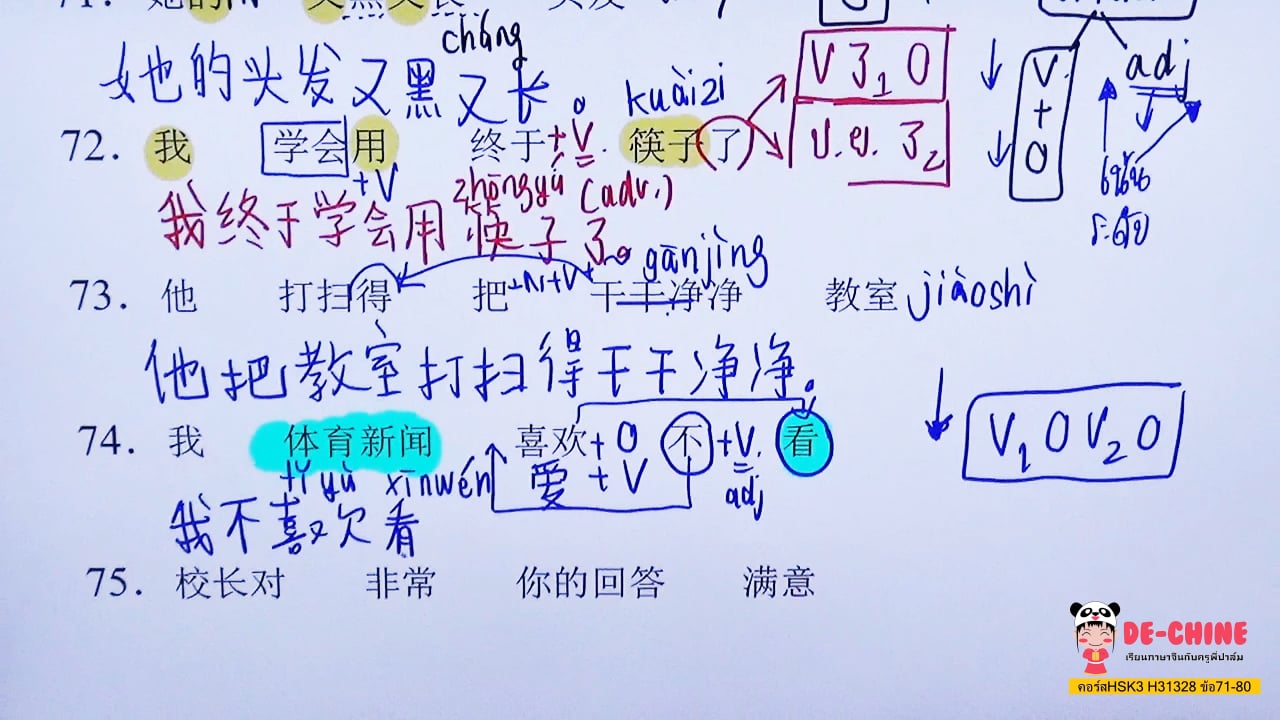 chǎng
她的头发又黑又长。
kuàizi
V 了₁ O
V.ฅ. 了₂
V.
+
O
adj
72. 我 学会用 终于+V. 筷子了
+V zhōngyú (adv.)
我终于学会用筷子了。
gānjìng
73. 他 打扫得 把+N+V 干干净净 教室 jiàoshì
他把教室打扫得干干净净.
74. 我 体育新闻 喜欢+O 不+V. 看
tǐyù xīnwén 爱+V adj
V₁ O V₂ O
我不喜欢看
75. 校长对 非常 你的回答 满意
DE-CHINE
เรียนภาษาจีนกับครูพี่ปาล์ม
คอร์สHSK3 H31328 ข้อ71-80